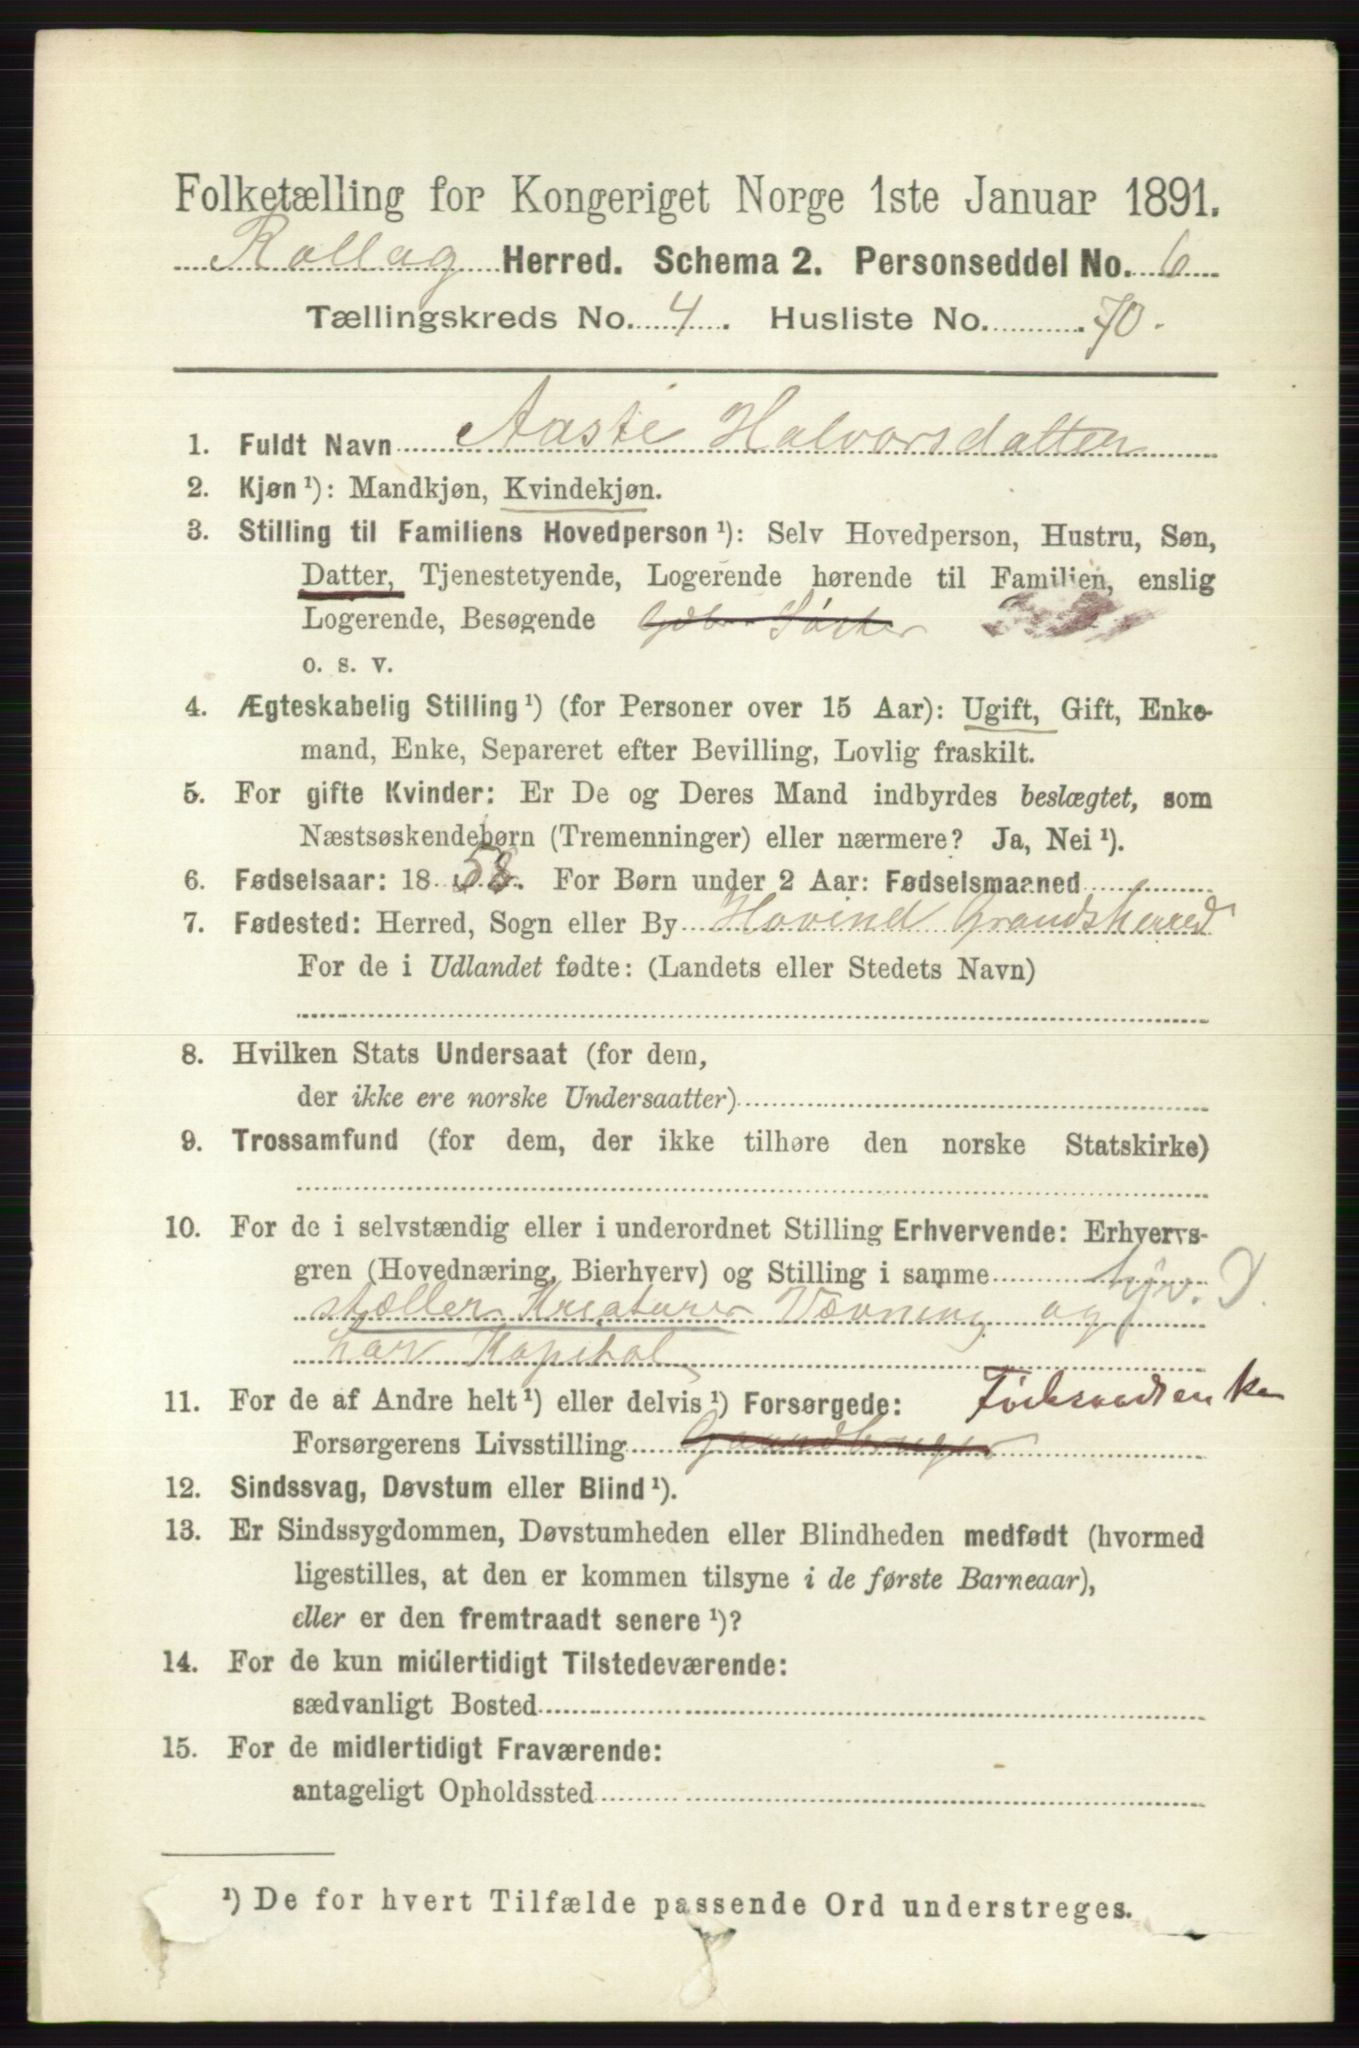 Folketælling for Kongeriget Norge 1ste Januar 1891.
Rollag Herred. Schema 2. Personseddel No. 6
Tællingskreds No. 4. Husliste No. 70.
1. Fuldt Navn Aaste Halvorsdatter
2. Kjøn ¹): Mandkjøn, Kvindekjøn.
3. Stilling til Familiens Hovedperson ¹): Selv Hovedperson, Hustru, Søn,
Datter, Tjenestetyende, Logerende hørende til Familien, enslig
Logerende, Besøgende Søster
o. s. v.
4. Ægteskabelig Stilling ¹) (for Personer over 15 Aar): Ugift, Gift, Enke-
mand, Enke, Separeret efter Bevilling, Lovlig fraskilt.
5. For gifte Kvinder: Er De og Deres Mand indbyrdes beslægtet, som
Næstsøskendebørn (Tremenninger) eller nærmere? Ja, Nei ¹).
6. Fødselsaar: 1858. For Børn under 2 Aar: Fødselsmaaned
7. Fødested: Herred, Sogn eller By Hovind Grandsherred
For de i Udlandet fødte: (Landets eller Stedets Navn)
8. Hvilken Stats Undersaat (for dem,
der ikke ere norske Undersaatter)
9. Trossamfund (for dem, der ikke tilhøre den norske Statskirke)
10. For de i selvstændig eller i underordnet Stilling Erhvervende: Erhvervs-
gren (Hovednæring, Bierhverv) og Stilling i samme
stæller Kreaturer Vævning og
har Kapital
11. For de af Andre helt ¹) eller delvis ¹) Forsørgede:
Forsørgerens Livsstilling Gaardbruger
12. Sindssvag, Døvstum eller Blind ¹).
13. Er Sindssygdommen, Døvstumheden eller Blindheden medfødt (hvormed
ligestilles, at den er kommen tilsyne i de første Barneaar),
eller er den fremtraadt senere ¹)?
14. For de kun midlertidigt Tilstedeværende:
sædvanligt Bosted
15. For de midlertidigt Fraværende:
antageligt Opholdssted
¹) De for hvert Tilfælde passende Ord understreges.